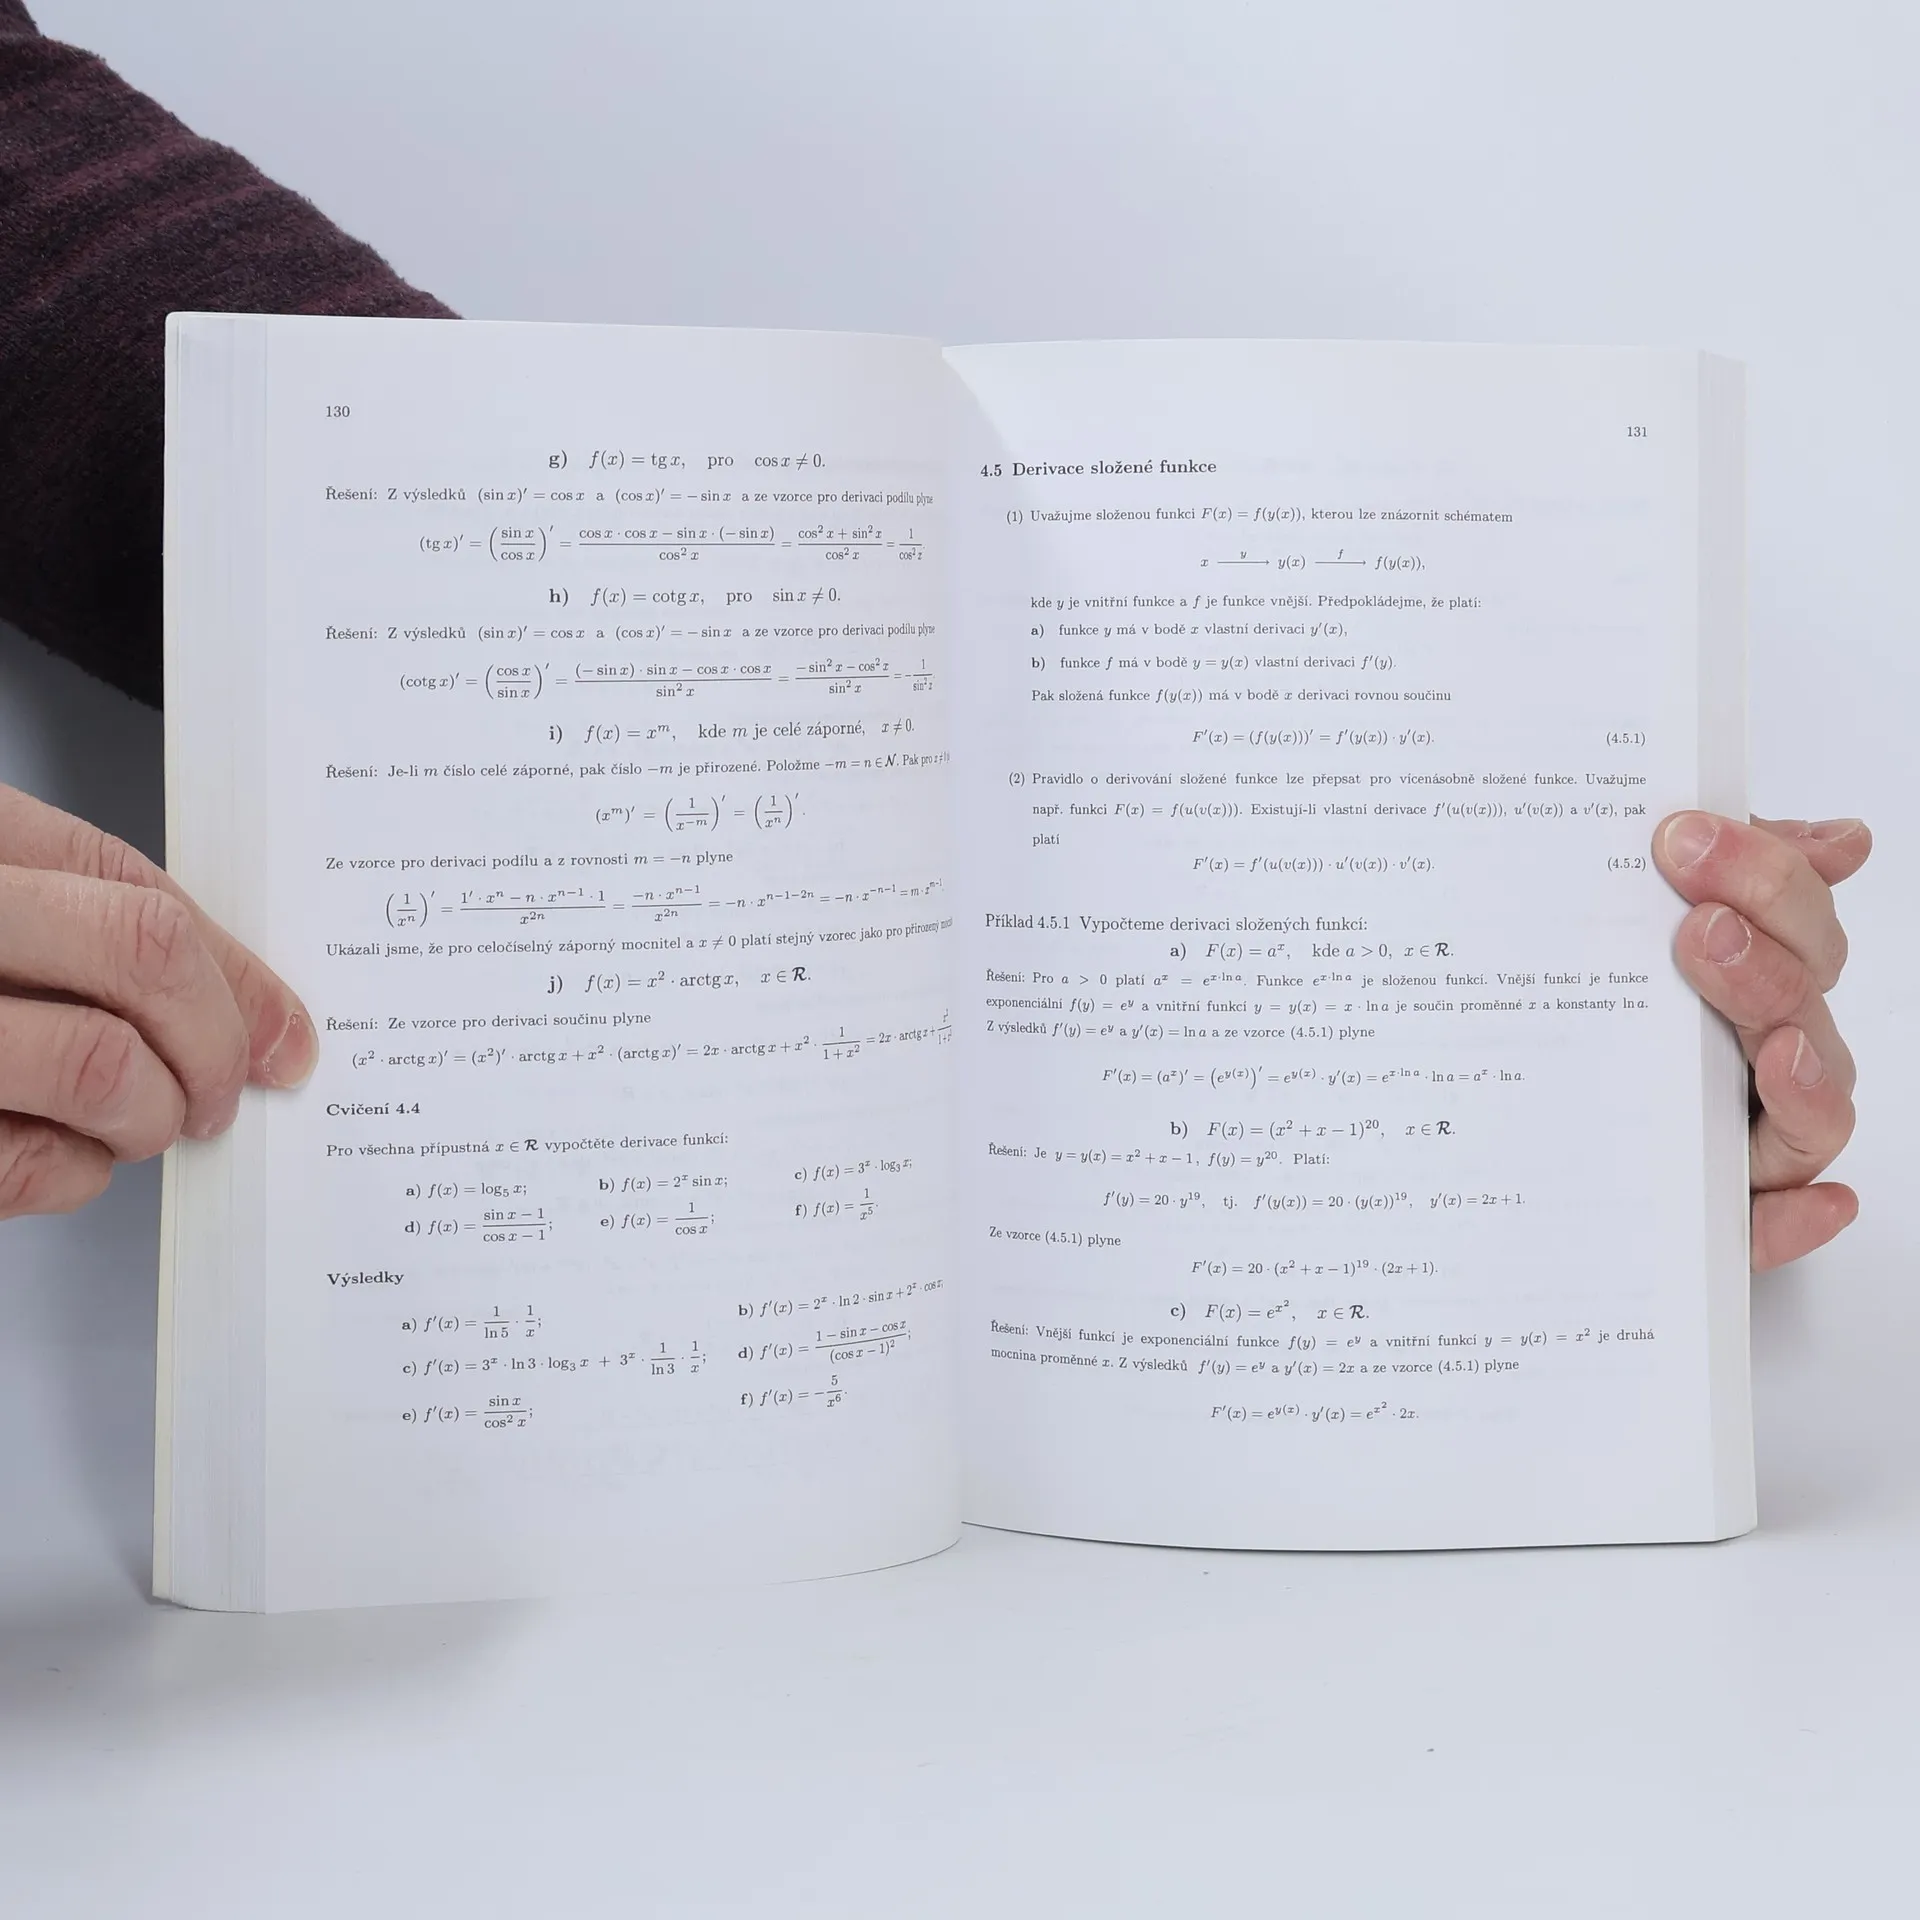 130
g) f(x) = tg x, pro cos x ≠ 0.
Řešení: Z výsledků (sin x)′ = cos x a (cos x)′ = − sin x a ze vzorce pro derivaci podílu plyne
(tg x)′ = (sin x / cos x)′ = (cos x · cos x − sin x · (− sin x)) / cos² x = (cos² x + sin² x) / cos² x = 1 / cos² x.
h) f(x) = cotg x, pro sin x ≠ 0.
Řešení: Z výsledků (sin x)′ = cos x a (cos x)′ = − sin x a ze vzorce pro derivaci podílu plyne
(cotg x)′ = (cos x / sin x)′ = ((− sin x) · sin x − cos x · cos x) / sin² x = (− sin² x − cos² x) / sin² x = − 1 / sin² x.
i) f(x) = xᵐ, kde m je celé záporné, x ≠ 0.
Řešení: Je-li m číslo celé záporné, pak číslo −m je přirozené. Položme −m = n ∈ N. Pak pro x ≠
(xᵐ)′ = (1 / x⁻ᵐ)′ = (1 / xⁿ)′.
Ze vzorce pro derivaci podílu a z rovnosti m = −n plyne
(1 / xⁿ)′ = (1′ · xⁿ − n · xⁿ⁻¹ · 1) / x²ⁿ = (−n · xⁿ⁻¹) / x²ⁿ = −n · xⁿ⁻¹⁻²ⁿ = −n · x⁻ⁿ⁻¹ = m · xᵐ⁻¹.
Ukázali jsme, že pro celočíselný záporný mocnitel a x ≠ 0 platí stejný vzorec jako pro přirozený
j) f(x) = x² · arctg x, x ∈ R.
Řešení: Ze vzorce pro derivaci součinu plyne
(x² · arctg x)′ = (x²)′ · arctg x + x² · (arctg x)′ = 2x · arctg x + x² · 1 / (1 + x²) = 2x · arctg x +
Cvičení 4.4
Pro všechna přípustná x ∈ R vypočtěte derivace funkcí:
a) f(x) = log₅ x; b) f(x) = 2ˣ sin x; c) f(x) = 3ˣ · log₃ x;
d) f(x) = (sin x − 1) / (cos x − 1); e) f(x) = 1 / cos x; f) f(x) = 1 / x⁵.
Výsledky
a) f′(x) = 1 / ln 5 · 1 / x; b) f′(x) = 2ˣ · ln 2 · sin x + 2ˣ · cos x;
c) f′(x) = 3ˣ · ln 3 · log₃ x + 3ˣ · 1 / ln 3 · 1 / x; d) f′(x) = (1 − sin x − cos x) / (cos x − 1)²;
e) f′(x) = sin x / cos² x; f) f′(x) = − 5 / x⁶.
131
4.5 Derivace složené funkce
(1) Uvažujme složenou funkci F(x) = f(y(x)), kterou lze znázornit schématem
x —y→ y(x) —f→ f(y(x)),
kde y je vnitřní funkce a f je funkce vnější. Předpokládejme, že platí:
a) funkce y má v bodě x vlastní derivaci y′(x),
b) funkce f má v bodě y = y(x) vlastní derivaci f′(y).
Pak složená funkce f(y(x)) má v bodě x derivaci rovnou součinu
F′(x) = (f(y(x)))′ = f′(y(x)) · y′(x). (4.5.1)
(2) Pravidlo o derivování složené funkce lze přepsat pro vícenásobně složené funkce. Uvažujme
např. funkci F(x) = f(u(v(x))). Existují-li vlastní derivace f′(u(v(x))), u′(v(x)) a v′(x), pak
platí
F′(x) = f′(u(v(x))) · u′(v(x)) · v′(x). (4.5.2)
Příklad 4.5.1 Vypočteme derivaci složených funkcí:
a) F(x) = aˣ, kde a > 0, x ∈ R.
Řešení: Pro a > 0 platí aˣ = e^(x·ln a). Funkce e^(x·ln a) je složenou funkcí. Vnější funkcí je funkce
exponenciální f(y) = eʸ a vnitřní funkcí y = y(x) = x · ln a je součin proměnné x a konstanty ln a.
Z výsledků f′(y) = eʸ a y′(x) = ln a a ze vzorce (4.5.1) plyne
F′(x) = (aˣ)′ = (e^(y(x)))′ = e^(y(x)) · y′(x) = e^(x·ln a) · ln a = aˣ · ln a.
b) F(x) = (x² + x − 1)²⁰, x ∈ R.
Řešení: Je y = y(x) = x² + x − 1, f(y) = y²⁰. Platí:
f′(y) = 20 · y¹⁹, tj. f′(y(x)) = 20 · (y(x))¹⁹, y′(x) = 2x + 1.
Ze vzorce (4.5.1) plyne
F′(x) = 20 · (x² + x − 1)¹⁹ · (2x + 1).
c) F(x) = e^(x²), x ∈ R.
Řešení: Vnější funkcí je exponenciální funkce f(y) = eʸ a vnitřní funkcí y = y(x) = x² je druhá
mocnina proměnné x. Z výsledků f′(y) = eʸ a y′(x) = 2x a ze vzorce (4.5.1) plyne
F′(x) = e^(y(x)) · y′(x) = e^(x²) · 2x.